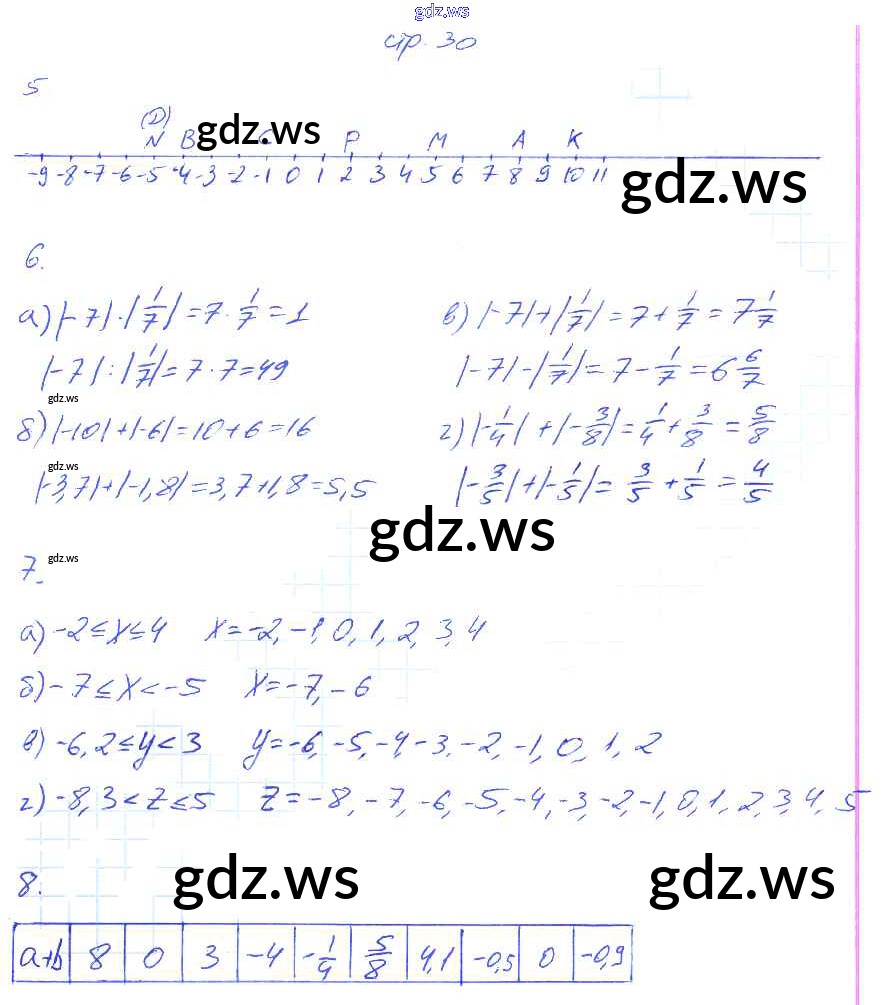 gdz.ws
стр. 30
5
(D)
N B gdz.ws C P M A K
-9 -8 -7 -6 -5 -4 -3 -2 -1 0 1 2 3 4 5 6 7 8 9 10 11
gdz.ws
6.
а) |-7| · |1/7| = 7 · 1/7 = 1
в) |-7| + |1/7| = 7 + 1/7 = 7 1/7
|-7| : |1/7| = 7 · 7 = 49
|-7| - |1/7| = 7 - 1/7 = 6 6/7
gdz.ws
б) |-10| + |-6| = 10 + 6 = 16
г) |-1/4| + |-3/8| = 1/4 + 3/8 = 5/8
gdz.ws
|-3,7| + |-1,8| = 3,7 + 1,8 = 5,5
|-3/5| + |-1/5| = 3/5 + 1/5 = 4/5
gdz.ws
7. gdz.ws
а) -2 ≤ x ≤ 4 x = -2, -1, 0, 1, 2, 3, 4
б) -7 ≤ x < -5 x = -7, -6
в) -6,2 ≤ y < 3 y = -6, -5, -4, -3, -2, -1, 0, 1, 2
г) -8,3 < z ≤ 5 z = -8, -7, -6, -5, -4, -3, -2, -1, 0, 1, 2, 3, 4, 5
8. gdz.ws gdz.ws
a+b 8 0 3 -4 -1/4 5/8 4,1 -0,5 0 -0,9